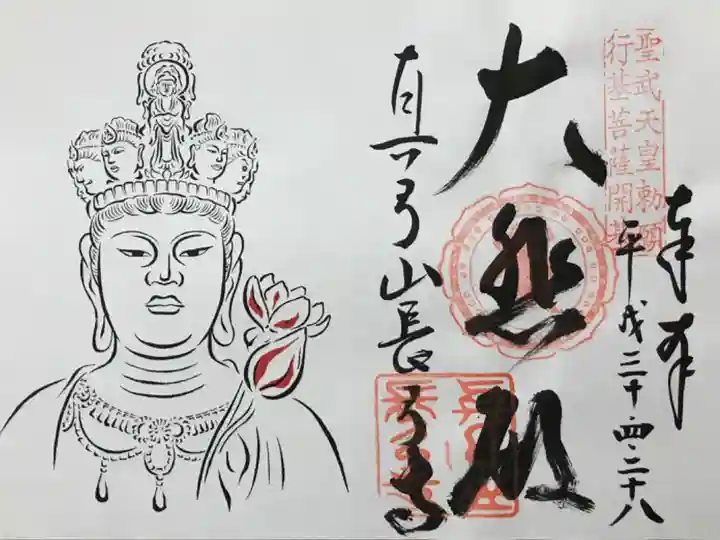 奉拝
聖武天皇勅願
行基菩薩開基
平成三十・四・二十八
大悲殿
真弓山長弓寺